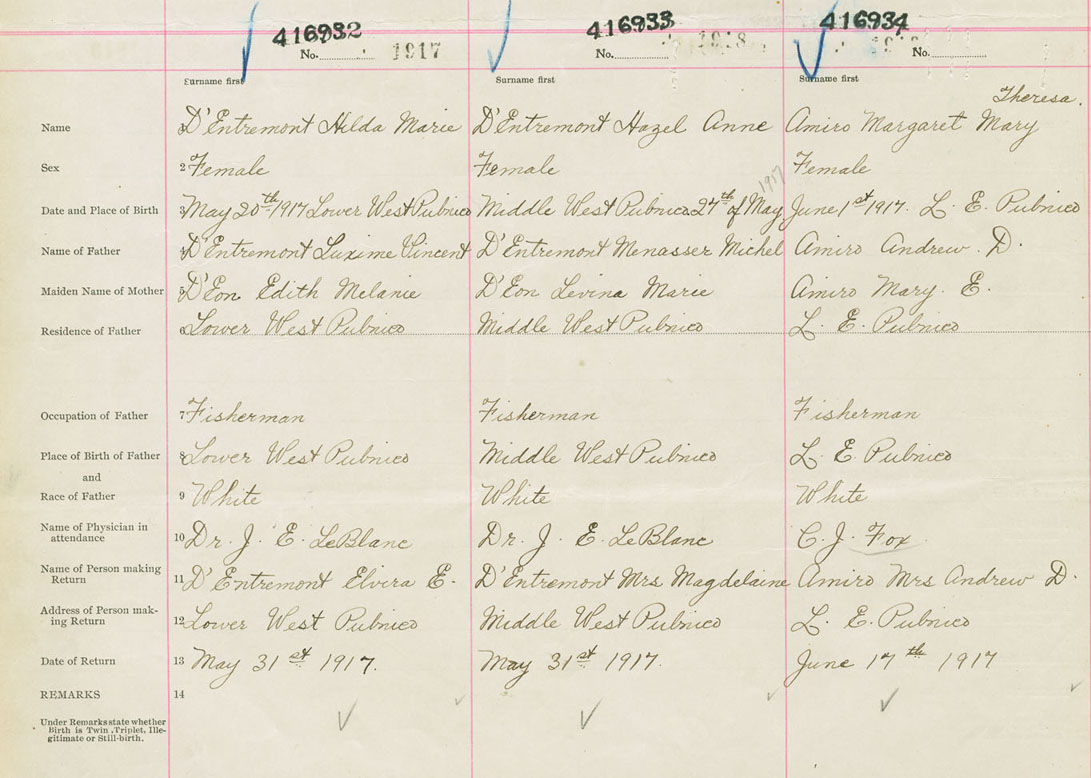 416932 416933 416934
No. 1917 No. 1918 No.
Surname first Surname first Surname first
Theresa.
Name 1 D'Entremont Hilda Marie D'Entremont Hazel Anne Amiro Margaret Mary
Sex 2 Female Female Female
1917
Date and Place of Birth 3 May 20th 1917 Lower West Pubnico Middle West Pubnico 27th of May June 1st 1917. L. E. Pubnico
Name of Father 4 D'Entremont Luxime Vincent D'Entremont Menasser Michel Amiro Andrew. D.
Maiden Name of Mother 5 D'Eon Edith Melanie D'Eon Levina Marie Amiro Mary. E.
Residence of Father 6 Lower West Pubnico Middle West Pubnico L. E. Pubnico
Occupation of Father 7 Fisherman Fisherman Fisherman
Place of Birth of Father 8 Lower West Pubnico Middle West Pubnico L. E. Pubnico
and
Race of Father 9 White White White
Name of Physician in
attendance 10 Dr. J. E. LeBlanc Dr. J. E. LeBlanc C. J. Fox.
Name of Person making
Return 11 D'Entremont Elvira E. D'Entremont Mrs Magdelaine Amiro Mrs Andrew D.
Address of Person mak-
ing Return 12 Lower West Pubnico Middle West Pubnico L. E. Pubnico
Date of Return 13 May 31st 1917. May 31st 1917. June 17th 1917
REMARKS 14
Under Remarks state whether
Birth is Twin, Triplet, Ille-
gitimate or Still-birth.